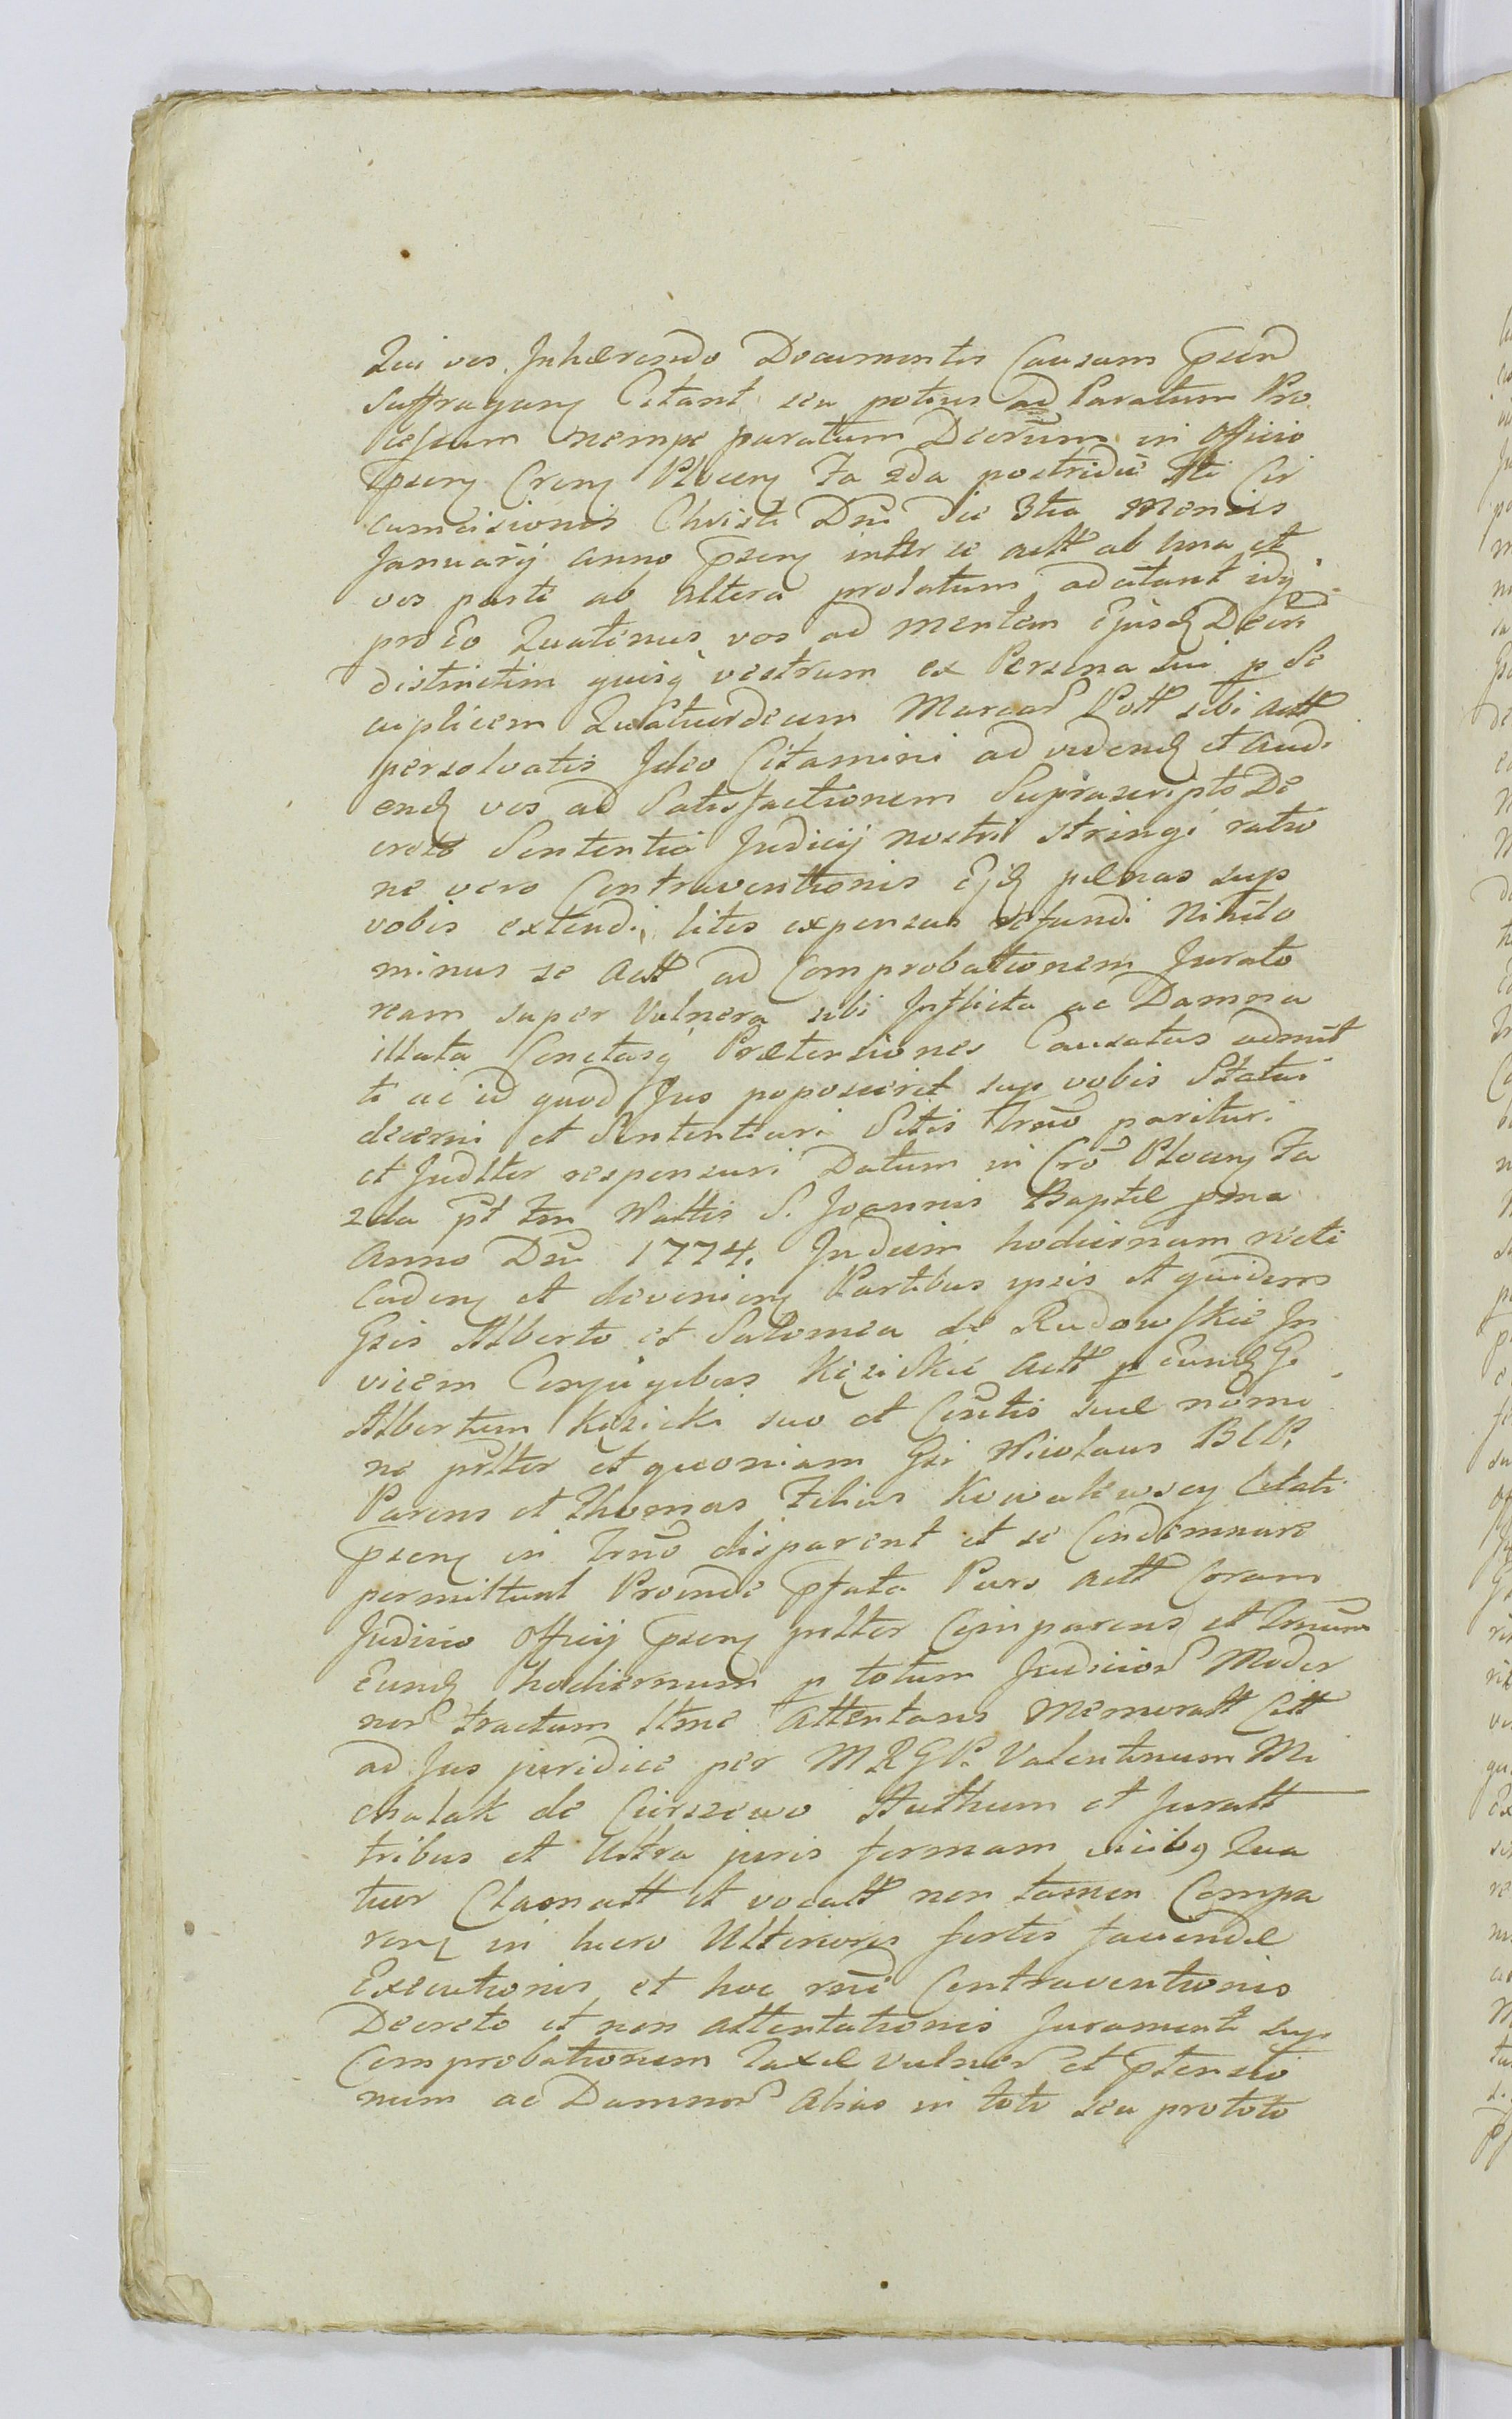 Qui vos Inhærendo Documentis Causam Psend
Suffragany Citant seu potius ad Paratum Pro
cessum nempe paratum Decrum in Officio
Pseny Creny Ploceny Fa 2da postridie Sti Cir
cumcisionis Christi Dni die 3tia Mensis
Januarij Anno Pseny inter se Actt ab una et
vos parte ab altera prolatum adcitant idq
pro Eo Quatenus vos ad mentem Ejusd Decri
distinctim quisq vestrum ex Persona sui p Se
cuplicem Quatuordecim Marcar Poll sibi Actt
persolvatis Ideo Citamini ad vidend et Audi
end vos ad Satisfactionem Suprascripto De
creto Sententia Judicij nostri stringi ratio
ne vero Contraventionis Ejd pænas sup
vobis extendi, litis expensas refundi Nihilo
minus se Actt ad Comprobationem Jurato
ream super Vulnera sibi Inflicta ac Damna
illata Cunctasq Prætensiones Causatas admit
ti ac id quod Jus poposcerit sup vobis Statui
decerni et Sententiari Sitis Trno parituri
et Judlter responsuri Datum in Cro Ploceny Fa
2da pt tm Nattis S. Joannis Baptæ pma
Anno Dni 1774. Indeim hodiernum rite
Cadeny et devenieny Partibus ipsis et quidem
Gsis Alberto et Salomea de Rudowskie In
vicem Conjugibus Kęsickie Actt p Eund G.
Albertum Kęsicki suo et Consortis suæ nomi
ne prlter et quoniam Gsi Nicolaus B C P.
Parens et Thomas Filius Kowalewscy Citati
Pseny in Trno disparent et se Condemnare
permittunt Proinde Pfata Pars Actt Coram
Judicio Officij Pseny prlter Comparens et Trnum
Eund hodiernum p totum Judicior Moder
nor tractum ltme Attentans Memoratt Citt
ad Jus juridice per M R G P. Valentinum Mi
chalak de Cierszewo Authum et Juratt
tribus et Ultra juris formam vicibq Qua
tuor Clamatt et vocatt non tamen Compa
reny in lucro Ulterioris fortis faciendæ
Executionis et hoc rne Contraventionis
Decreto et non attentationis Juramenti sup
Comprobationem Taxæ vulner et Ptensio
num ac Damnor Alias in toto seu pro toto